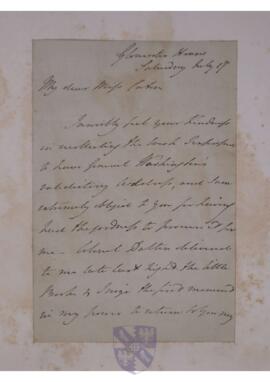 Gloucester House
Saturday July 19
My dear Miss Porter
I sensibly feel your kindness
in recollecting the wish I expressed
to have General Washington's
valedictory Address, and I am
extremely obliged to you for having
had the goodness to procure it for
me - Colonel Dalton delivered
to me late last night the little
Books & I seize the first moment
in my power to return to you my